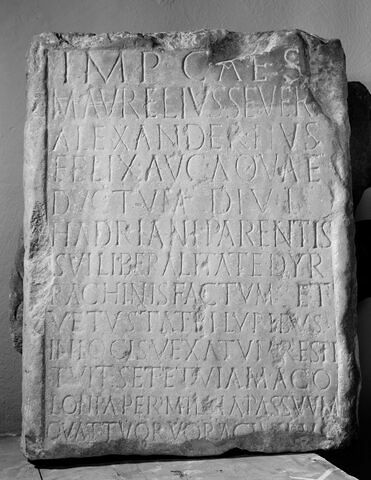 IMP CAES
M AVRELIVS SEVER
ALEXANDER PIVS
FELIX AVG AQVAE
DVCTVM DIVI
HADRIANI PARENTIS
SVI LIBERALITATE DYR
RACHINIS FACTVM ET
VETVSTATE PLVRIBVS
IN LOCIS VEXATVM RESTI
TVIT SET ET VIAM A CO
LONIA PER MILIA PASSVVM
QVATTVOR